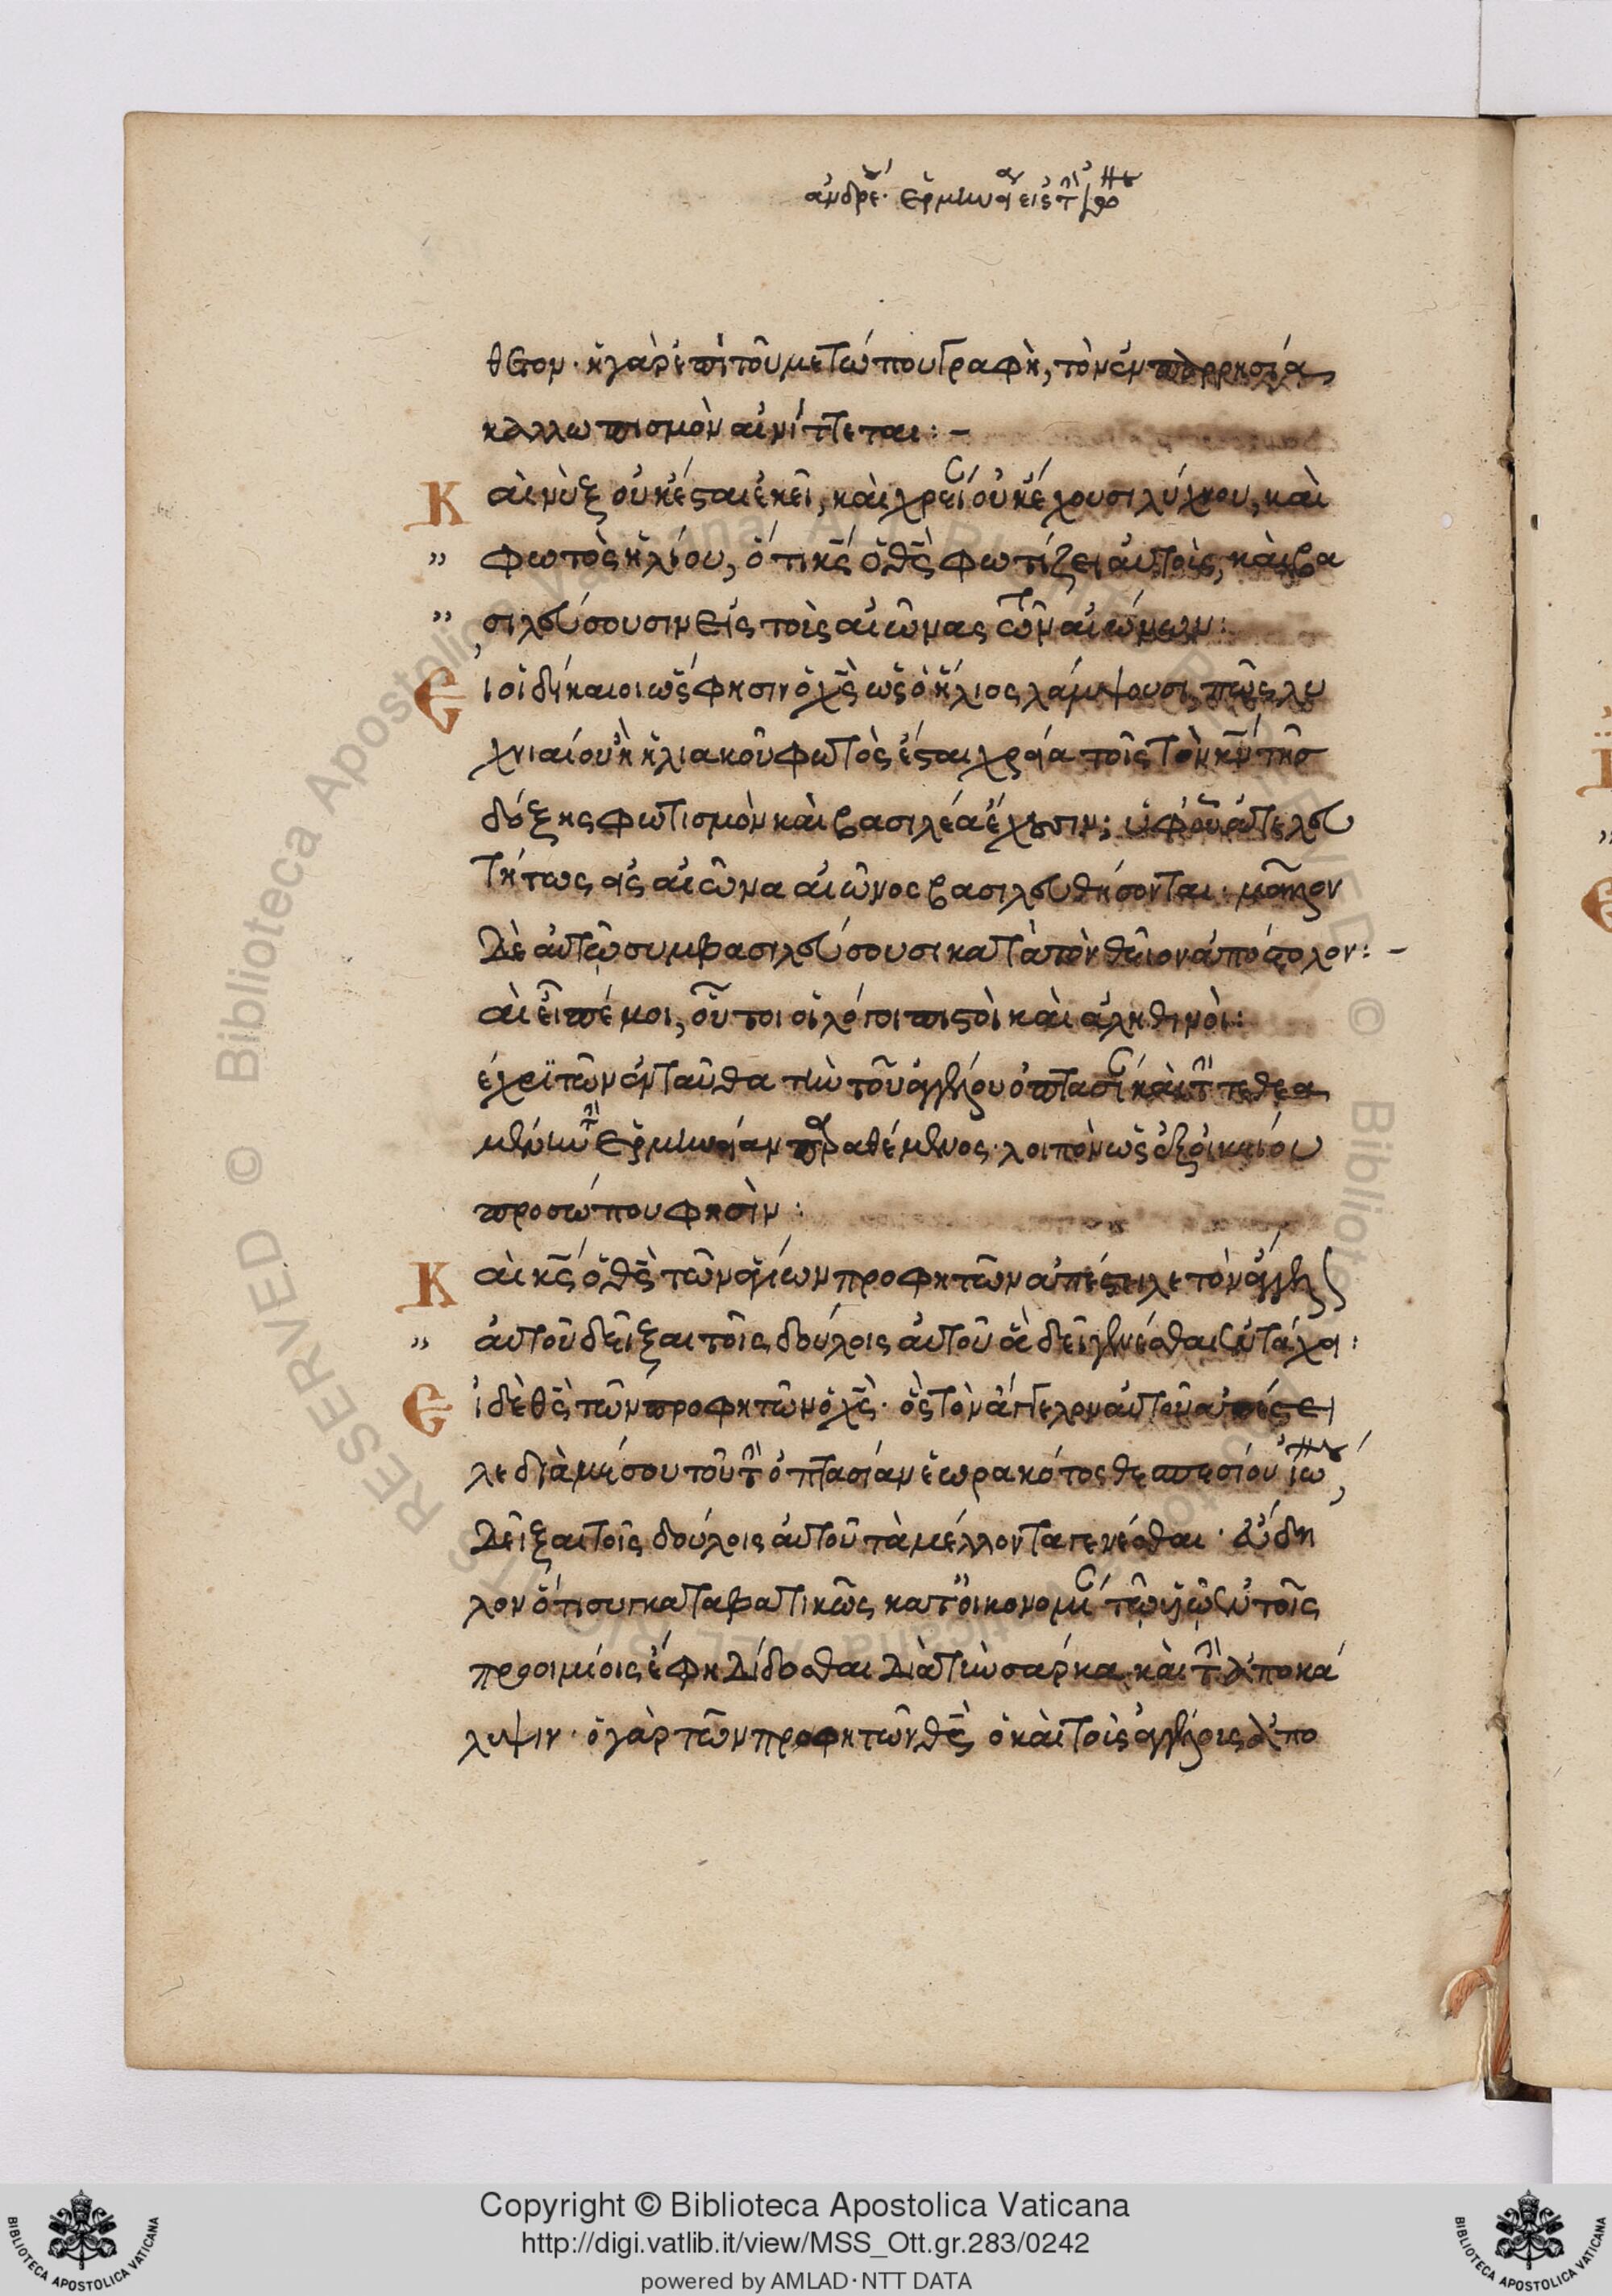 ἀνδρέ. ἑρμινεία εἰς τὴν
θεον· ἡ γὰρ ἐπὶ τοῦ μετώπου γραφὴ, τὸν ἐν παρρησία
καλλωπισμὸν αἰνίττεται:–
Καὶ νὺξ οὐκ ἔσται ἐκεῖ, καὶ χρείαν οὐκ ἔχουσι λύχνου, καὶ
" φωτὸς ἡλίου, ὅτι κς ὁ θς φωτίζει αὐτοὺς, καὶ βα
" σιλεύσουσιν εἰς τοὺς αἰῶνας τῶν αἰώνων:
Εἰ οἱ δίκαιοι ὥς φησιν ὁ χς ὡς ὁ ἥλιος λάμψουσι, πῶς λυ
χνιαίου ἢ ἡλιακοῦ φωτὸς ἔσται χρεία τοῖς τὸν κν τῆς
δόξης φωτισμὸν καὶ βασιλέα ἔχουσιν; ὑφ' οὗ ἀτελευ
τήτως εἰς αἰῶνα αἰῶνος βασιλευθήσονται· μᾶλλον
δὲ αὐτῷ συμβασιλεύσουσι κατὰ τὸν θεῖον ἀπόστολον:–
αὶ εἶπέ μοι, οὗτοι οἱ λόγοι πιστοὶ καὶ ἀληθινοὶ:
έχρι τῶν ἐνταῦθα τὴν τοῦ ἀγγέλου ὀπτασίαν καὶ τὴν τεθεα
μένων τὴν ἑρμινείαν παραθέμενος· λοιπὸν ὡς ἐξ οἰκείου
προσώπου φησὶν:
Καὶ κς ὁ θς τῶν ἁγίων προφητῶν ἀπέστειλε τὸν ἄγγελον
" αὐτοῦ δεῖξαι τοῖς δούλοις αὐτοῦ ἃ δεῖ γενέσθαι ἐν τάχει:
Εἰ δὲ θς τῶν προφητῶν ὁ χς· ὃς τὸν ἄγγελον αὐτοῦ ἀπέστει
λε διὰ μέσου τοῦ τὴν ὀπτασίαν ἑωρακότος θεσπεσίου ἰωάννου,
δεῖξαι τοῖς δούλοις αὐτοῦ τὰ μέλλοντα γενέσθαι· εὔδη
λον ὅτι συγκαταβατικῶς κατ' οἰκονομίαν τῷ υἱῷ ἐν τοῖς
προοιμίοις ἔφη δίδοσθαι διὰ τὴν σάρκα καὶ τὴν ἀποκά
λυψιν· ὁ γὰρ τῶν προφητῶν θς ὁ καὶ τοὺς ἀγγέλους ἀπο
Copyright © Biblioteca Apostolica Vaticana
http://digi.vatlib.it/view/MSS_Ott.gr.283/0242
powered by AMLAD · NTT DATA
BIBLIOTECA APOSTOLICA VATICANA
BIBLIOTECA APOSTOLICA VATICANA